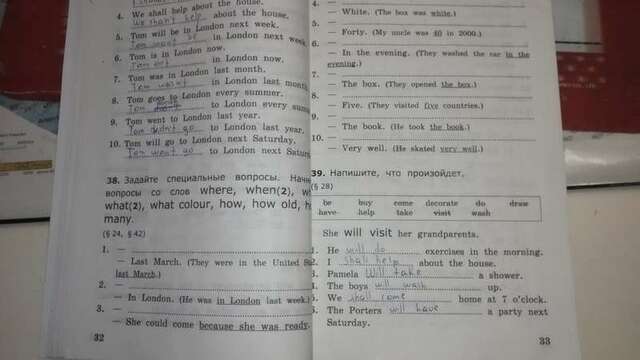 4. We shall help about the house.
We shan't help about the house.
5. Tom will be in London next week.
Tom won't be in London next week.
6. Tom is in London now.
Tom in London now.
7. Tom was in London last month.
Tom wasn't in London last month.
8. Tom goes to London every summer.
Tom to London every summer.
9. Tom went to London last year.
Tom didn't go to London last year.
10. Tom will go to London next Saturday.
Tom won't go to London next
38. Задайте специальные вопросы.
вопросы со слов where, when(2),
what(2), what colour, how, how old,
many.
(§ 24, § 42)
1. —
— Last March. (They were in the United
last March.)
2. —
— In London. (He was in London last week.)
3. —
— She could come because she was ready.
32
4. —
— White. (The box was white.)
5. —
— Forty. (My uncle was 40 in 2000.)
6. —
— In the evening. (They washed the car in the
evening.)
7. —
— The box. (They opened the box.)
8. —
— Five. (They visited five countries.)
9. —
— The book. (He took the book.)
10. —
— Very well. (He skated very well.)
39. Напишите, что произойдет.
(§ 28)
be buy come decorate do draw
have help take visit wash
She will visit her grandparents.
1. He will do exercises in the morning.
2. I shall help about the house.
3. Pamela Will take a shower.
4. The boys will wash up.
5. We shall come home at 7 o'clock.
6. The Porters will have a party next
Saturday.
33